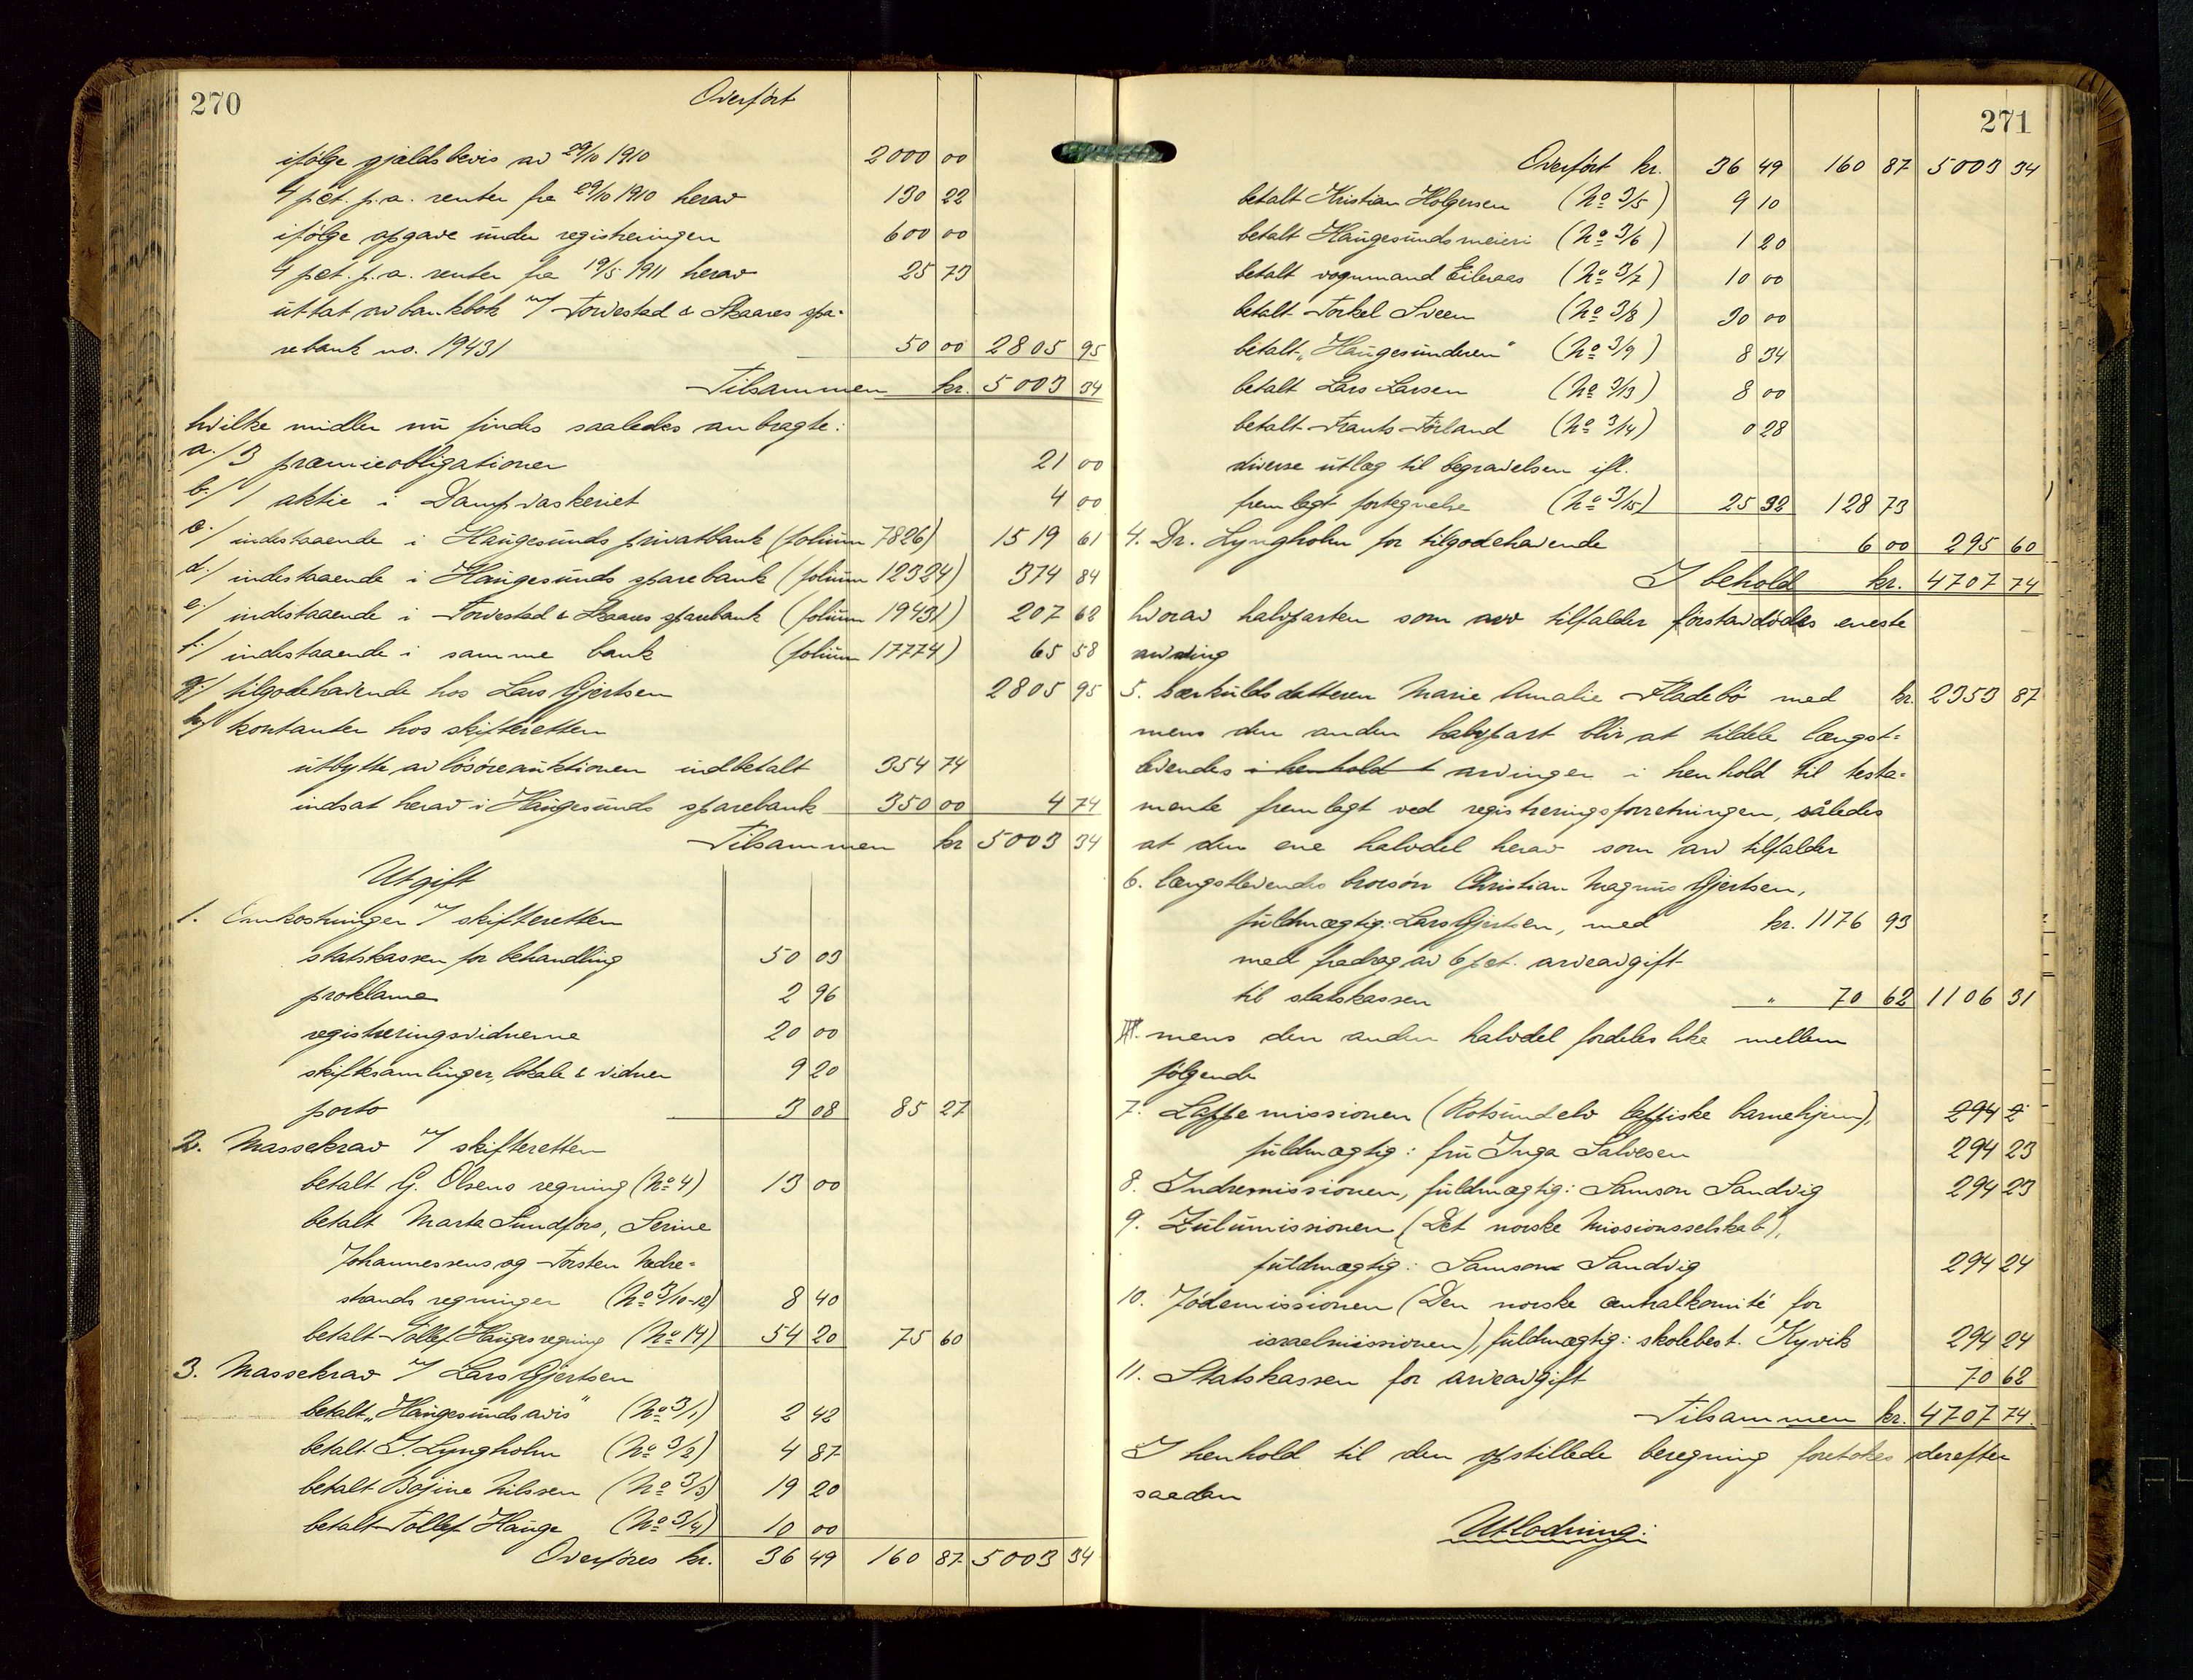 270
Overført
ifølge gjeldsbevis av 29/10 1910 2000 00
4 pct. p.a. renter fra 29/10 1910 herav 130 22
ifølge opgave under registreringen 600 00
4 pct. p.a. renter fra 19/5 1911 herav 25 73
uttat av bankbok 7/ Torvestad & Skaares spa-
rebank no. 19431 50 00 2805 95
Tilsammen kr. 5003 34
hvilke midler nu findes saaledes anbragte:
a./ 3 præmieobligationer 21 00
b./ 1 aktie i Dampvaskeriet 4 00
c./ indestaaende i Haugesunds privatbank (folium 7826) 1519 61
d./ indestaaende i Haugesunds sparebank (folium 12324) 374 84
e./ indestaaende i Torvestad & Skaares sparebank (folium 19431) 207 62
f./ indestaaende i samme bank (folium 17774) 65 58
g./ tilgodehavende hos Lars Gjertsen 2805 95
h./ kontanter hos skifteretten
utbytte av løsøreauktionen indbetalt 354 74
indsat herav i Haugesunds sparebank 350 00 4 74
Tilsammen kr 5003 34
Utgift
1. Omkostninger 7/ skifteretten
statskassen for behandling 50 03
proklama 2 96
registreringsvidnerne 20 00
skiftesamlinger, lokale & vidner 9 20
porto 3 08 85 27
2. Massekrav 7/ skifteretten
betalt G. Olsens regning (No 4) 13 00
betalt Marta Sundførs, Serine
Johannessens og Torsten Nedre-
strands regninger (No 3/10-12) 8 40
betalt Tollef Hauges regning (No 14) 54 20 75 60
3. Massekrav 7/ Lars Gjertsen
betalt „Haugesunds avis" (No 3/1) 2 42
betalt S. Lyngholm (No 3/2) 4 87
betalt Bosine Nilssen (No 3/3) 19 20
betalt Tollef Hauge (No 3/4) 10 00
Overføres kr. 36 49 160 87 5003 34
271
Overført kr. 36 49 160 87 5003 34
betalt Kristian Holgersen (No 3/5) 9 10
betalt Haugesunds meieri (No 3/6) 1 20
betalt vognmand Eileraas (No 3/7) 10 00
betalt Torkel Sveen (No 3/8) 30 00
betalt „Haugesunderen" (No 3/9) 8 34
betalt Lars Larsen (No 3/13) 8 00
betalt Frants Førland (No 3/14) 0 28
diverse utlæg til begravelsen ifl.
fremlagt fortegnelse (No 3/15) 25 32 128 73
4. Dr. Lyngholm for tilgodehavende 6 00 295 60
I behold kr. 4707 74
hvorav halvparten som arv tilfalder førstavdødes eneste
arving
5. særkuldsdatteren Marie Amalie Fladebø med kr. 2353 87
mens den anden halvpart blir at tildele længst-
levendes i henhold t arvinger i henhold til testa-
mente fremlagt ved registreringsforretningen, således
at den ene halvdel herav som arv tilfalder
6. længstlevendes brorsøn Christian Magnus Gjertsen,
fuldmægtig: Lars Gjertsen, med kr. 1176 93
med fradrag av 6 pct. arveavgift
til statskassen " 70 62 1106 31
mens den anden halvdel fordeles like mellem
følgende
7. Lappemissionen (Rotsundelv lappiske barnehjem), 294 2
fuldmægtig: fru Inga Salvesen 294 23
8. Indremissionen, fuldmægtig: Samson Sandvig 294 23
9. Zulumissionen (Det norske Missionsselskab),
fuldmægtig: Samson Sandvig 294 24
10. Jødemissionen (Den norske centralkomité for
israelmissionen), fuldmægtig: skolebest. Kyvik 294 24
11. Statskassen for arveavgift 70 62
Tilsammen kr. 4707 74.
I henhold til den opstillede beregning foretokes derefter
saadan
Utlodning: